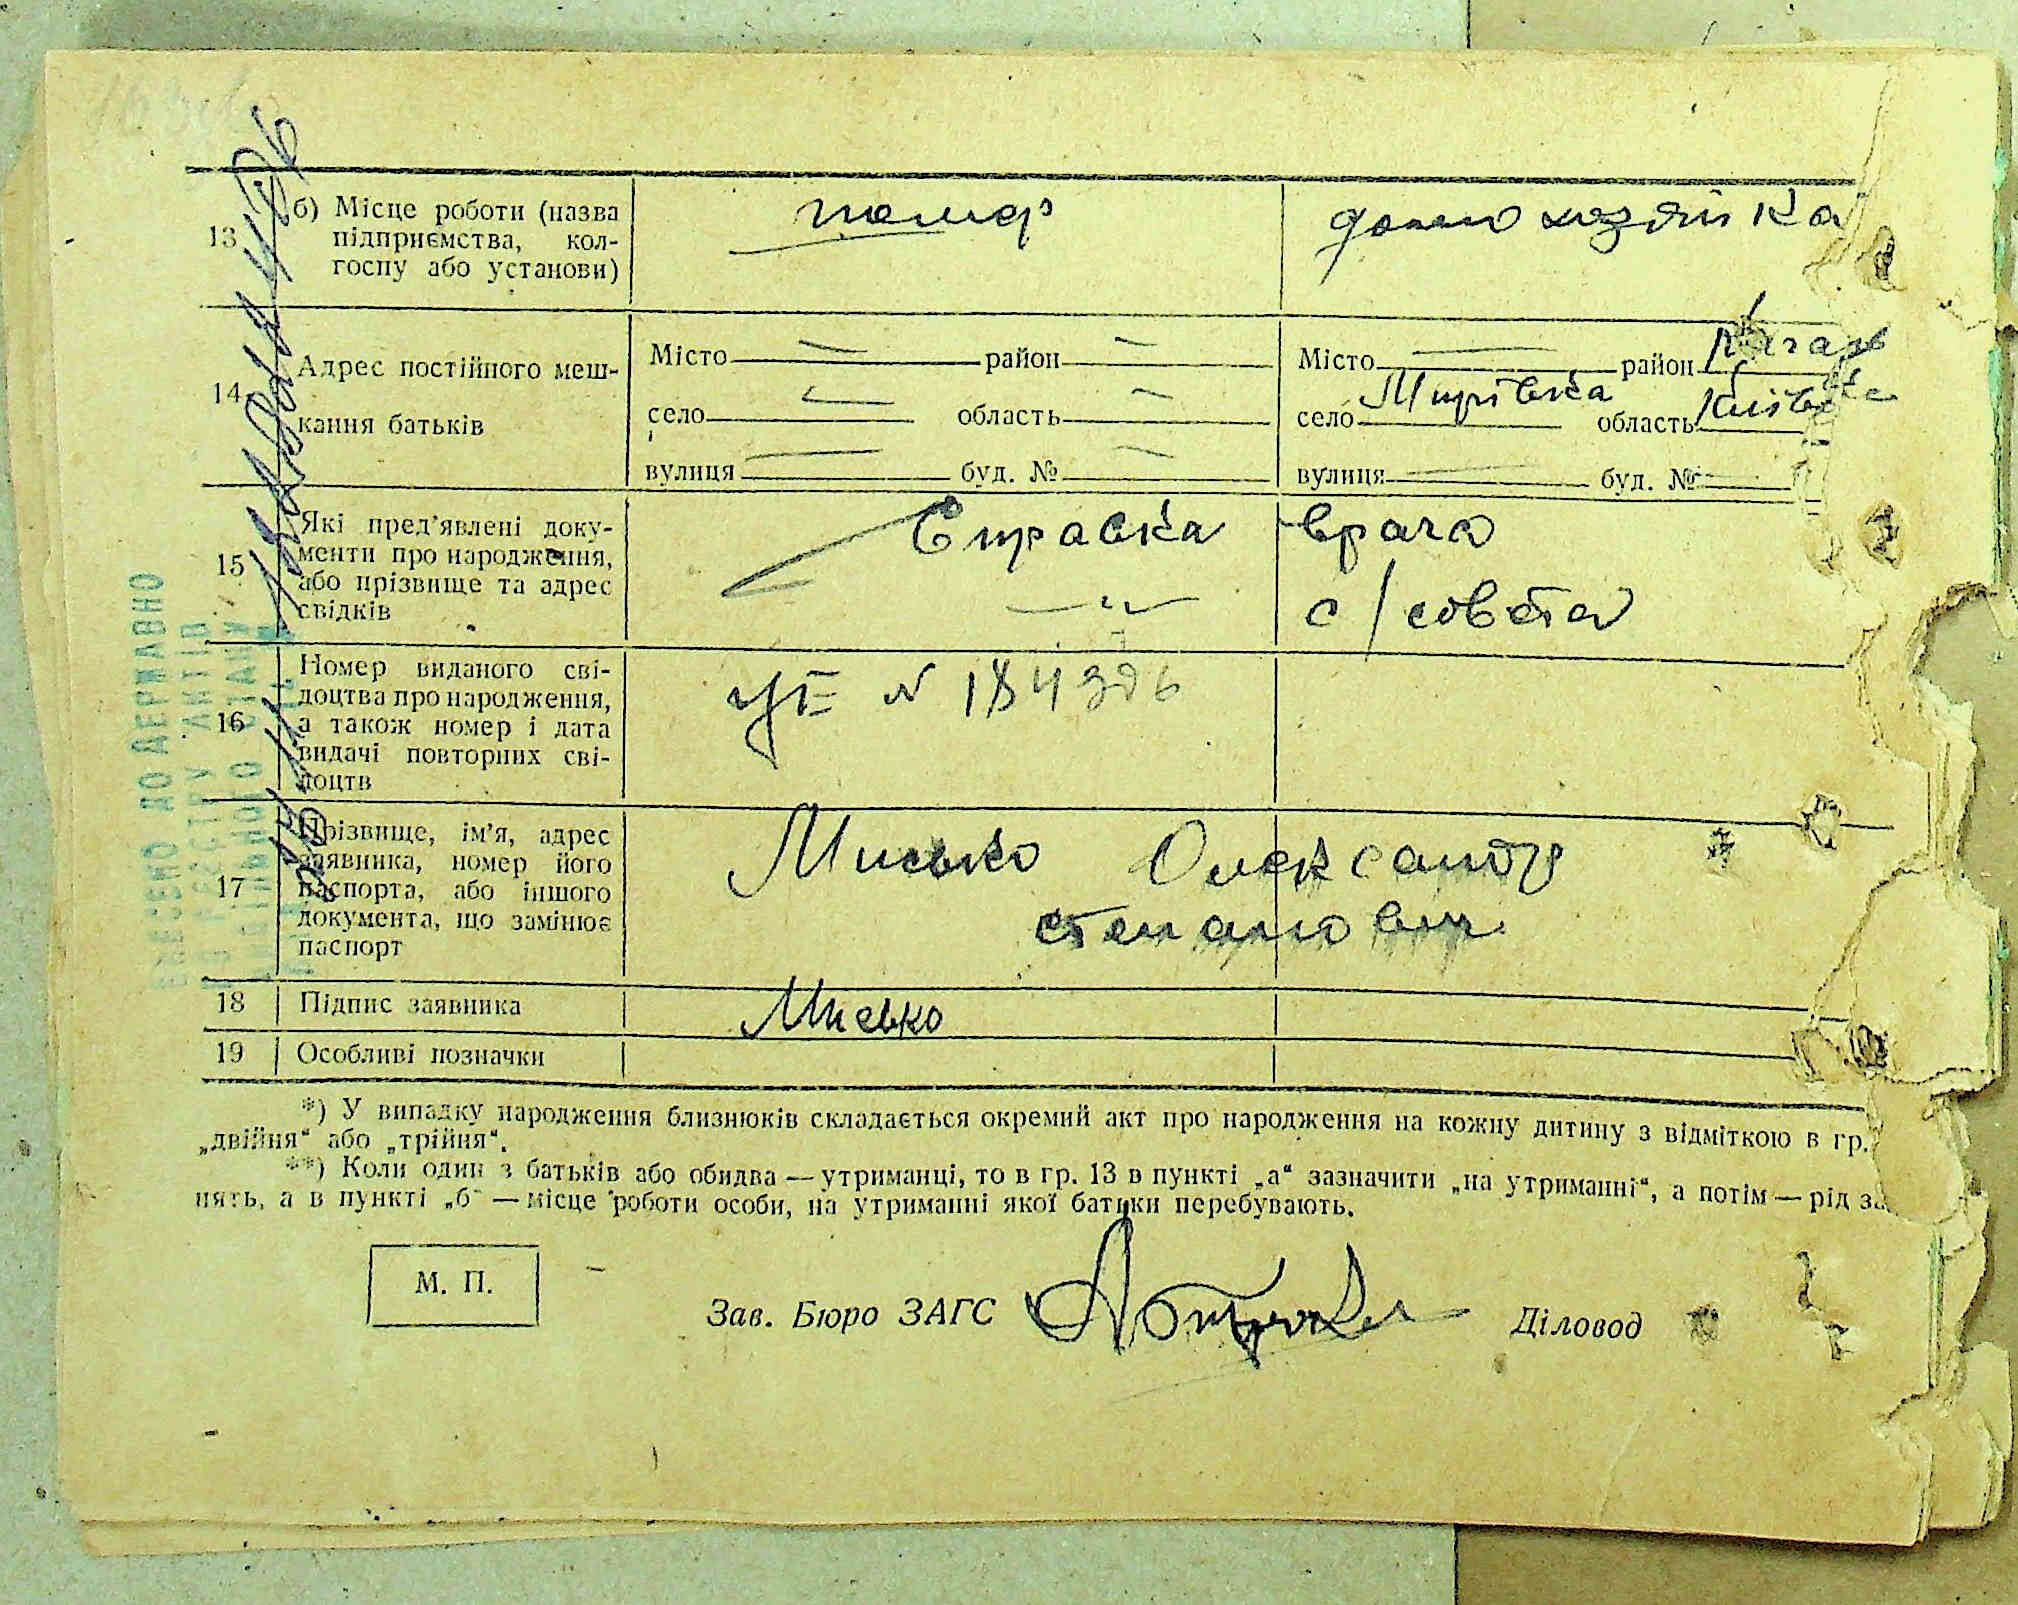 13 б) Місце роботи (назва підприємства, колгоспу або установи) помер домохозяйка
14 Адрес постійного мешкання батьків
Місто — район — Місто — район Каган
село — область — село Мирівка область Київська
вулиця — буд. № — вулиця — буд. № —
15 Які пред'явлені документи про народження, або прізвище та адрес свідків
Справка врача
—"— с/совета
16 Номер виданого свідоцтва про народження, а також номер і дата видачі повторних свідоцтв № 184396
17 Прізвище, ім'я, адрес заявника, номер його паспорта, або іншого документа, що замінює паспорт
Мисько Олександр
степанович
18 Підпис заявника Мисько
19 Особливі позначки
*) У випадку народження близнюків складається окремий акт про народження на кожну дитину з відміткою в гр.
„двійня“ або „трійня“.
**) Коли один з батьків або обидва — утриманці, то в гр. 13 в пункті „а“ зазначити „на утриманні“, а потім — рід за
нять, а в пункті „б“ — місце роботи особи, на утриманні якої батьки перебувають.
М. П.
Зав. Бюро ЗАГС Діловод
ВНЕСЕНО ДО ДЕРЖАВНО